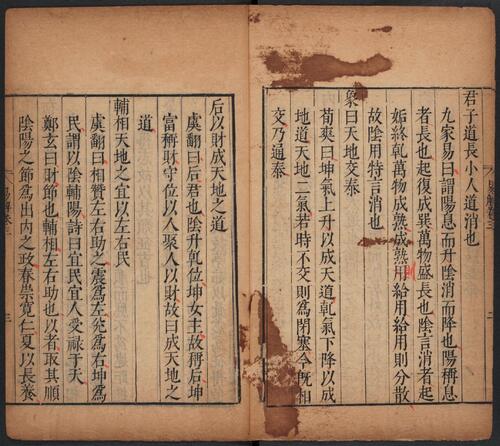 君子道長小人道消也
九家易曰謂陽息而升陰消而降也陽稱息
者長也起復成巽萬物盛長也陰言消者起
姤終乾萬物成熟成熟用給用給用則分散
故陰用特言消也
象曰天地交泰
荀爽曰坤氣上升以成天道乾氣下降以成
地道天地二氣若時不交則爲閉塞今旣相
交乃通泰
后以財成天地之道
虞翻曰后君也陰升乾位坤女主故稱后坤
富稱財守位以人聚人以財故曰成天地之
道
輔相天地之宜以左右民
虞翻曰相贊左右助之震爲左兊爲右坤爲
民謂以陰輔陽詩曰宜民宜人受祿于天
鄭玄曰財節也輔相左右助也以者取其順
陰陽之節爲出內之政春崇寬仁夏以長養
易解卷三
二
三